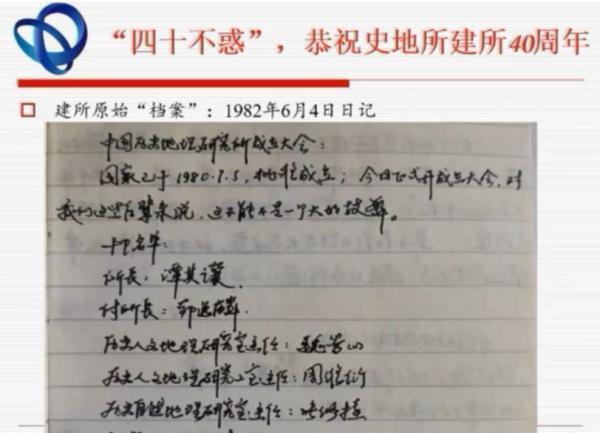 “四十不惑”，恭祝史地所建所40周年
建所原始“档案”：1982年6月4日日记
中国历史地理研究所成立大会：
国家已于1980.7.5，批准成立；今日正式开成立大会，对
我们这些后辈来说，这不能不是一个大的鼓舞。
名单：
所长：谭其骧
付所长：邹逸麟
历史人文地理研究室主任：魏嵩山
历史人文地理研究室主任：周维衍
历史自然地理研究室主任：张修桂